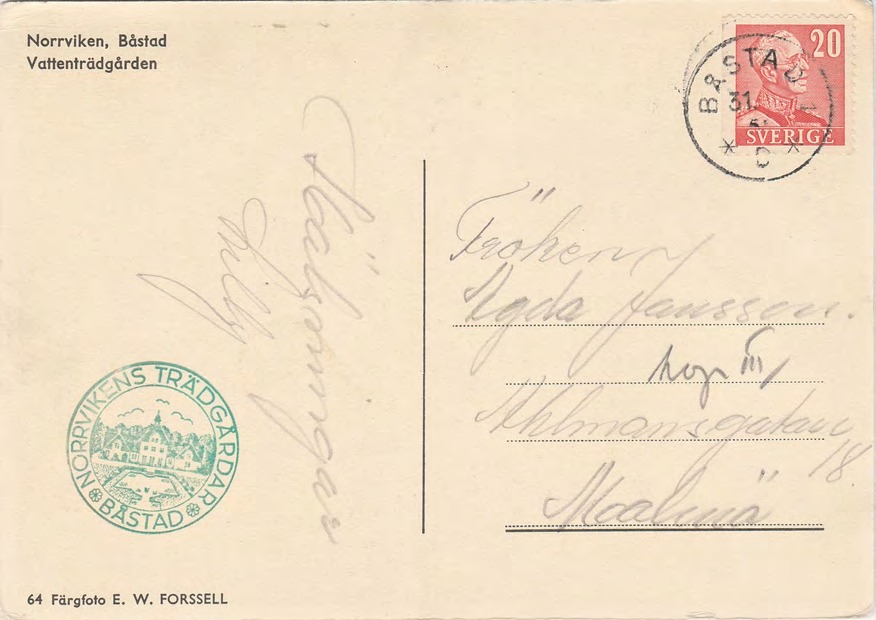 Norrviken, Båstad
Vattenträdgården
20
SVERIGE
BÅSTAD 1
31.
* C *
Hälsningar
Lilly
Fröken
Agda Jansson.
Ahlmansgatan
18.
Malmö
NORRVIKENS TRÄDGÅRDAR
BÅSTAD
64 Färgfoto E. W. FORSSELL